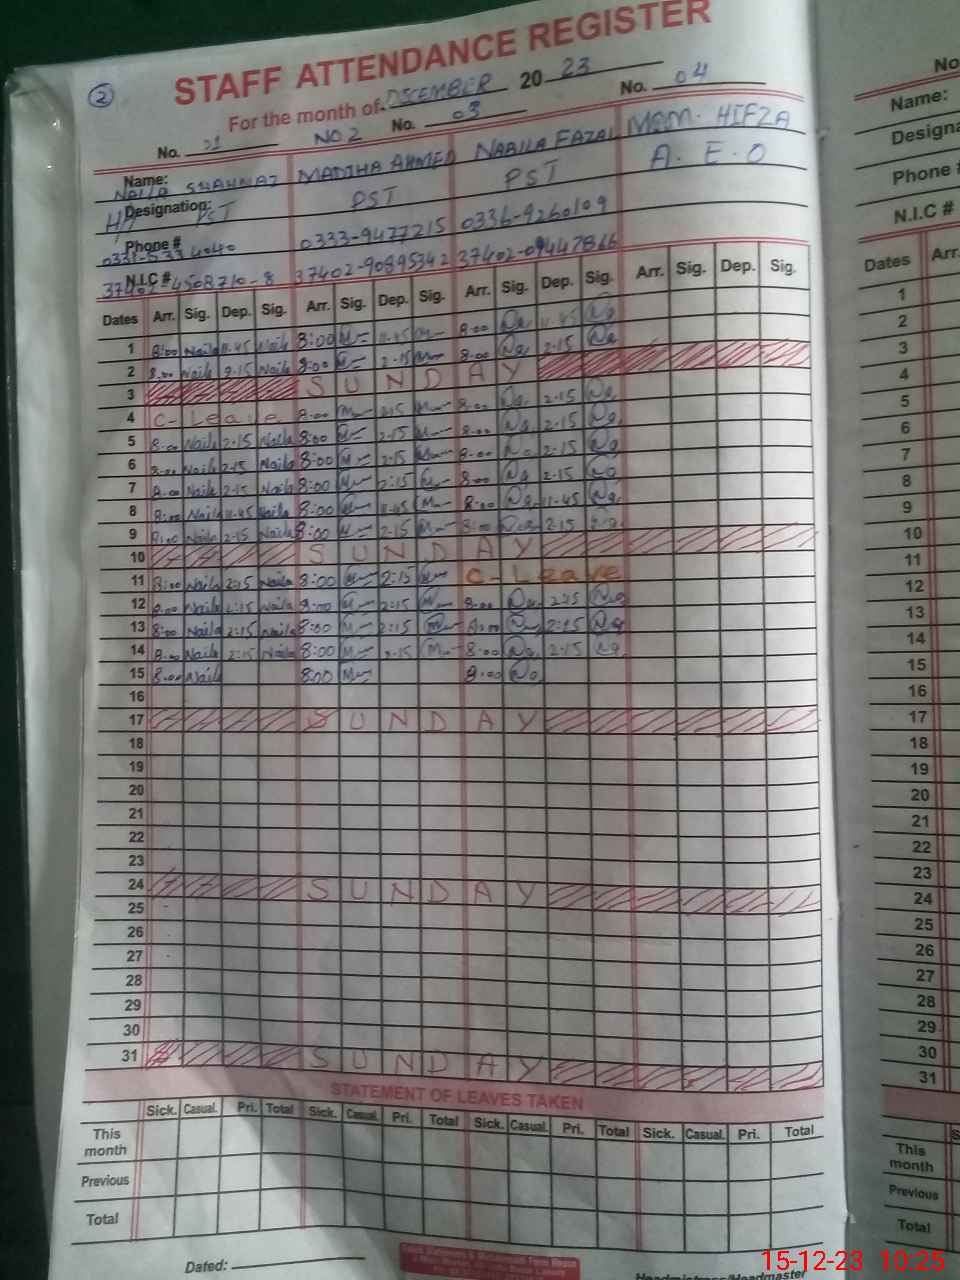 ② STAFF ATTENDANCE REGISTER
For the month of. DSCEMBER 20 23
No. 01 NO 2 No. 03 No. 04
Name: NAILA SHAHNAZ MADIHA AHMED NABILA FAZAL MAM. HIFZA
Designation: PST PST PST A.E.O
Phone # 0333-9477215 0336-9260109
N.I.C # 37402-4508710-8 37402-90895342
Dates Arr. Sig. Dep. Sig. Arr. Sig. Dep. Sig. Arr. Sig. Dep. Sig. Arr. Sig. Dep. Sig.
1 8:00 Naila 11.45 Naila 8:00 11.45 8:00 Na 11.45 Na
2 8.00 Naila 2.15 Naila 8:00 2.15 8:00 Na 2.15 Na
3 SUNDAY
4 C-Leave 8.00 2.15 8.00 Na 2.15 Na
5 8.00 Naila 2.15 Naila 8:00 2.15 8.00 Na 2.15 Na
6 8.00 Naila 2.15 Naila 8:00 2.15 8.00 Na 2.15 Na
7 8:00 Naila 2.15 Naila 8:00 2:15 8:00 Na 2.15 Na
8 8:00 Naila 11.45 Naila 8:00 11.45 8:00 Na 11.45 Na
9 8:00 Naila 2.15 Naila 8:00 2.15 8:00 Na 2.15 Na
10 SUNDAY
11 8:00 Naila 2:15 Naila 8:00 2:15 C-Leave
12 8.00 Naila 2:15 Naila 8:00 2:15 8.00 Na 2:15 Na
13 8:00 Naila 2:15 Naila 8:00 2:15 8:00 Na 2:15 Na
14 8.00 Naila 2:15 Naila 8:00 2.15 8:00 Na 2:15 Na
15 8.00 Naila 8:00 8:00 Na
16
17 SUNDAY
18
19
20
21
22
23
24 SUNDAY
25
26
27
28
29
30
31 SUNDAY
STATEMENT OF LEAVES TAKEN
Sick. Casual. Pri. Total Sick. Casual. Pri. Total Sick. Casual. Pri. Total Sick. Casual. Pri. Total
This month
Previous
Total
Dated:
Headmistress/Headmaster
No
Name:
Designa
Phone #
N.I.C #
Dates Arr.
1
2
3
4
5
6
7
8
9
10
11
12
13
14
15
16
17
18
19
20
21
22
23
24
25
26
27
28
29
30
31
This month
Previous
Total
15-12-23 10:25